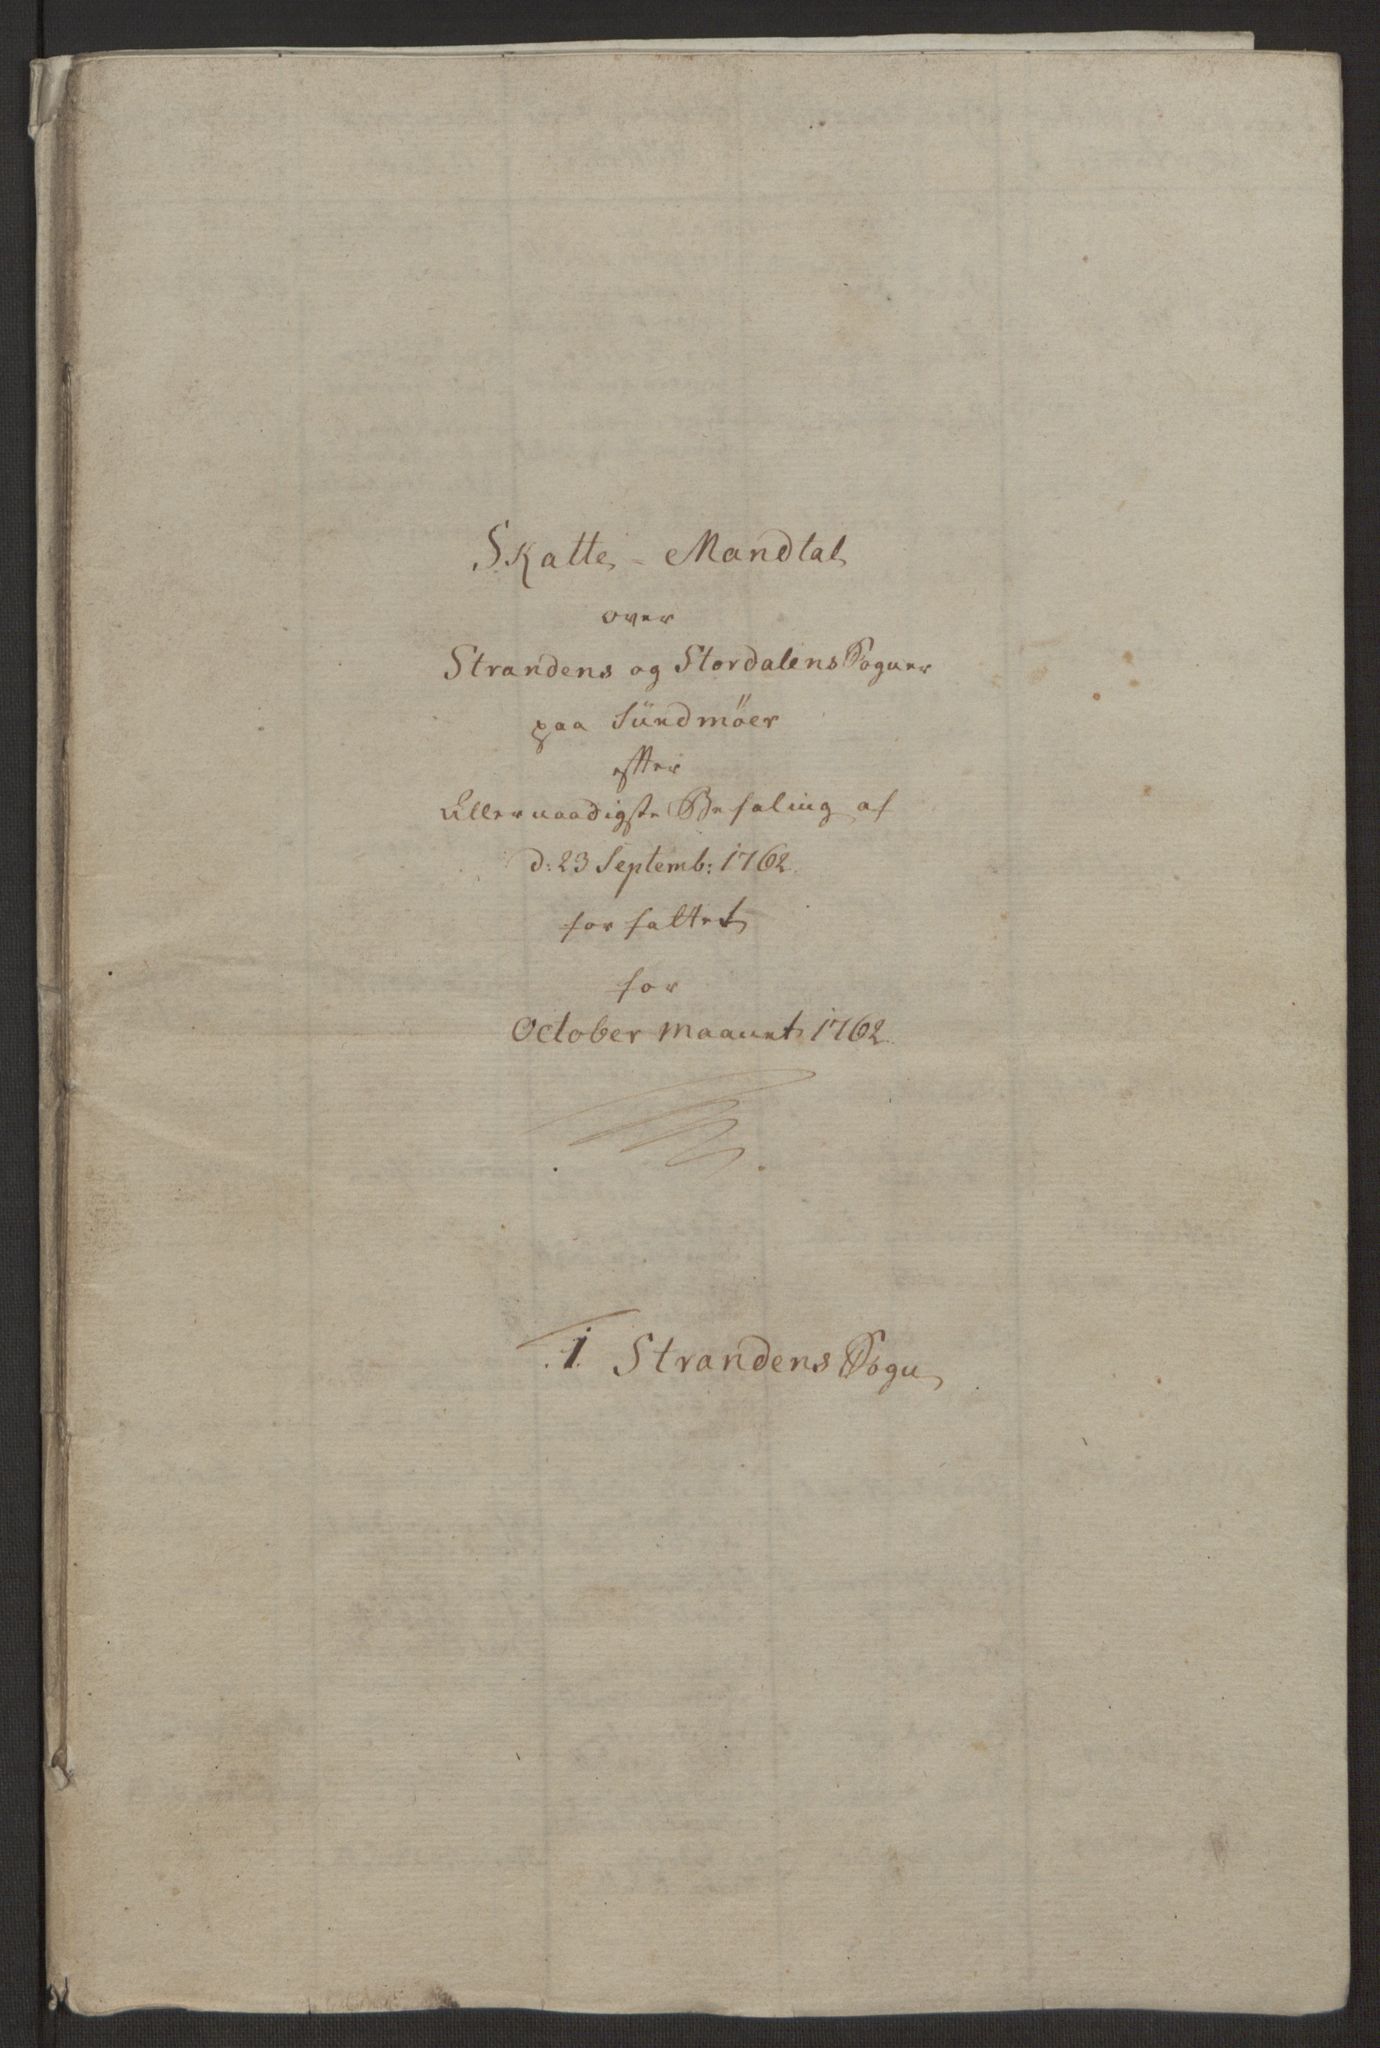 Skatte-Mandtal
over
Strandens og Stordalens Sogner
paa Sündmöer
efter
Allernaadigste Befaling af
d: 23 Septemb: 1762
forfattet
for
October maanet 1762
I Strandens Sogn